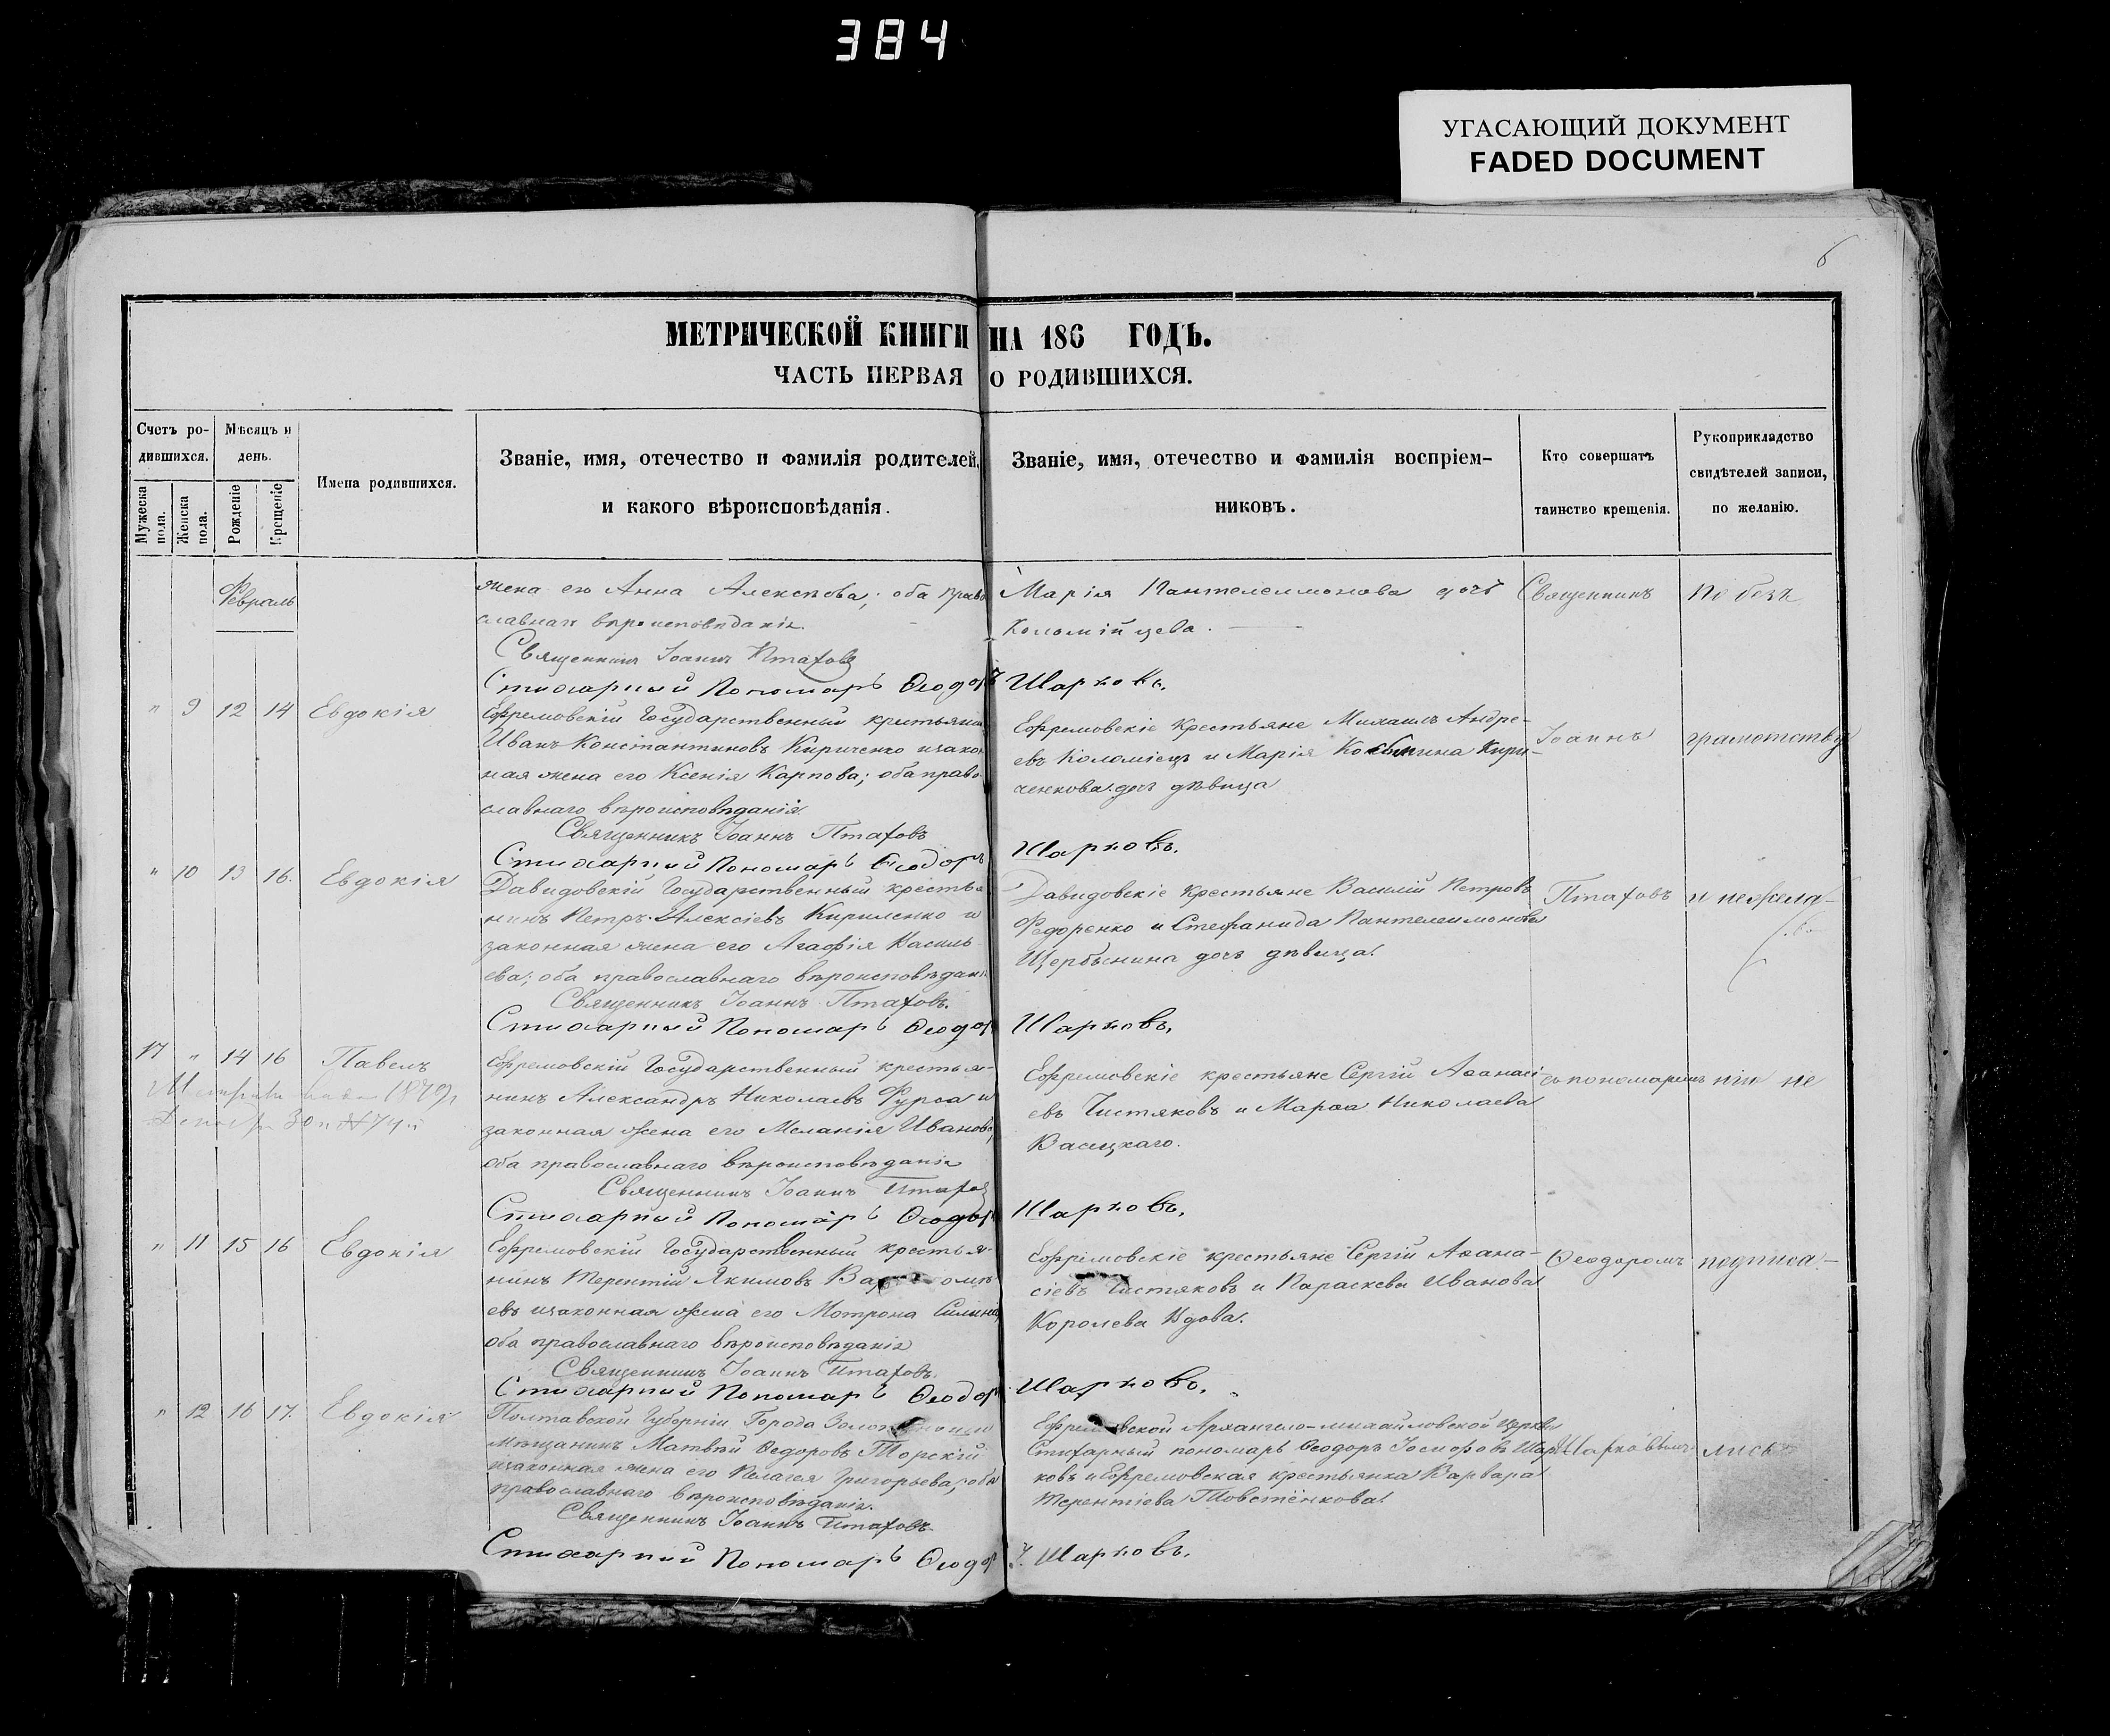 384
УГАСАЮЩИЙ ДОКУМЕНТ
FADED DOCUMENT
6
МЕТРИЧЕСКОЙ КНИГИ НА 186 ГОДЪ.
ЧАСТЬ ПЕРВАЯ О РОДИВШИХСЯ.
Счетъ ро-
дившихся.
Мужеска пола.
Женска пола.
Мѣсяцъ и
день.
Рождение
Крещеніе
Имена родившихся.
Званіе, имя, отечество и фамилія родителей,
и какого вѣроисповѣданія.
Званіе, имя, отечество и фамилія воспріем-
никовъ.
Кто совершатъ
таинство крещенія.
Рукоприкладство
свидѣтелей записи,
по желанію.
Февраль
жена его Анна Алексѣева; оба право
славнаго вѣроисповѣданія.
Марія Пантелеимонова дочь
Коломійцева.
Священникъ
По безъ
Священникъ Іоаннъ Птаховъ
Стихарный Пономарь Ѳеодоръ Шарковъ.
" 9 12 14 Евдокія
Ефремовскій Государственный крестьянинъ
Иванъ Константиновъ Кириченко и закон
ная жена его Ксенія Карпова; оба право
славнаго вѣроисповѣданія.
Ефремовскіе Крестьяне Михаилъ Андре-
евъ Коломіецъ и Марія Кири-
ченкова дочь дѣвица
Іоаннъ
грамотству
Священникъ Іоаннъ Птаховъ
Стихарный Пономарь Ѳеодоръ Шарковъ.
" 10 13 16. Евдокія
Давидовскій Государственный крестья
нинъ Петръ Алексіевъ Кириленко и
законная жена его Агафія Василь
ева; оба православнаго вѣроисповѣдані
Давидовскіе Крестьяне Василій Петровъ
Федоренко и Стефанида Пантелеимонова
Щербинина дочь дѣвица.
Птаховъ
и нежела-
Священникъ Іоаннъ Птаховъ.
Стихарный Пономарь Ѳеодоръ Шарковъ.
17 " 14 16 Павелъ
1879
30 № 74
Ефремовскій Государственный крестья-
нинъ Александръ Николаевъ Фурса и
законная жена его Меланія Иванова
оба православнаго вѣроисповѣданія
Ефремовскіе крестьяне Сергій Аѳанасі
евъ Чистяковъ и Марѳа Николаева
съ пономаремъ
нію не
Священникъ Іоаннъ Птаховъ
Стихарный Пономарь Ѳеодоръ Шарковъ.
" 11 15 16 Евдокія
Ефремовскій Государственный крестья-
нинъ Терентій Якимовъ
евъ и законная жена его Мотрона Силина
оба православнаго вѣроисповѣданія
Ефремовскіе крестьяне Сергій Аѳана-
сіевъ Чистяковъ и Параскева Иванова
Королева Вдова.
Ѳеодоромъ
подписа-
Священникъ Іоаннъ Птаховъ.
Стихарный Пономарь Ѳеодоръ Шарковъ.
" 12 16 17. Евдокія
Полтавской Губерніи Города
мѣщанинъ Матвѣй Ѳедоровъ Торскій
и законная жена его Пелагея Григорьева, оба
православнаго вѣроисповѣданія.
Ефремовской Архангело-михайловской Церкви
Стихарный пономарь Ѳеодоръ Іосифовъ Шар
ковъ и Ефремовская крестьянка Варвара
Терентіева Товстёнкова.
Шарковымъ
лись
Священникъ Іоаннъ Птаховъ
Стихарный Пономарь Ѳеодоръ Шарковъ.